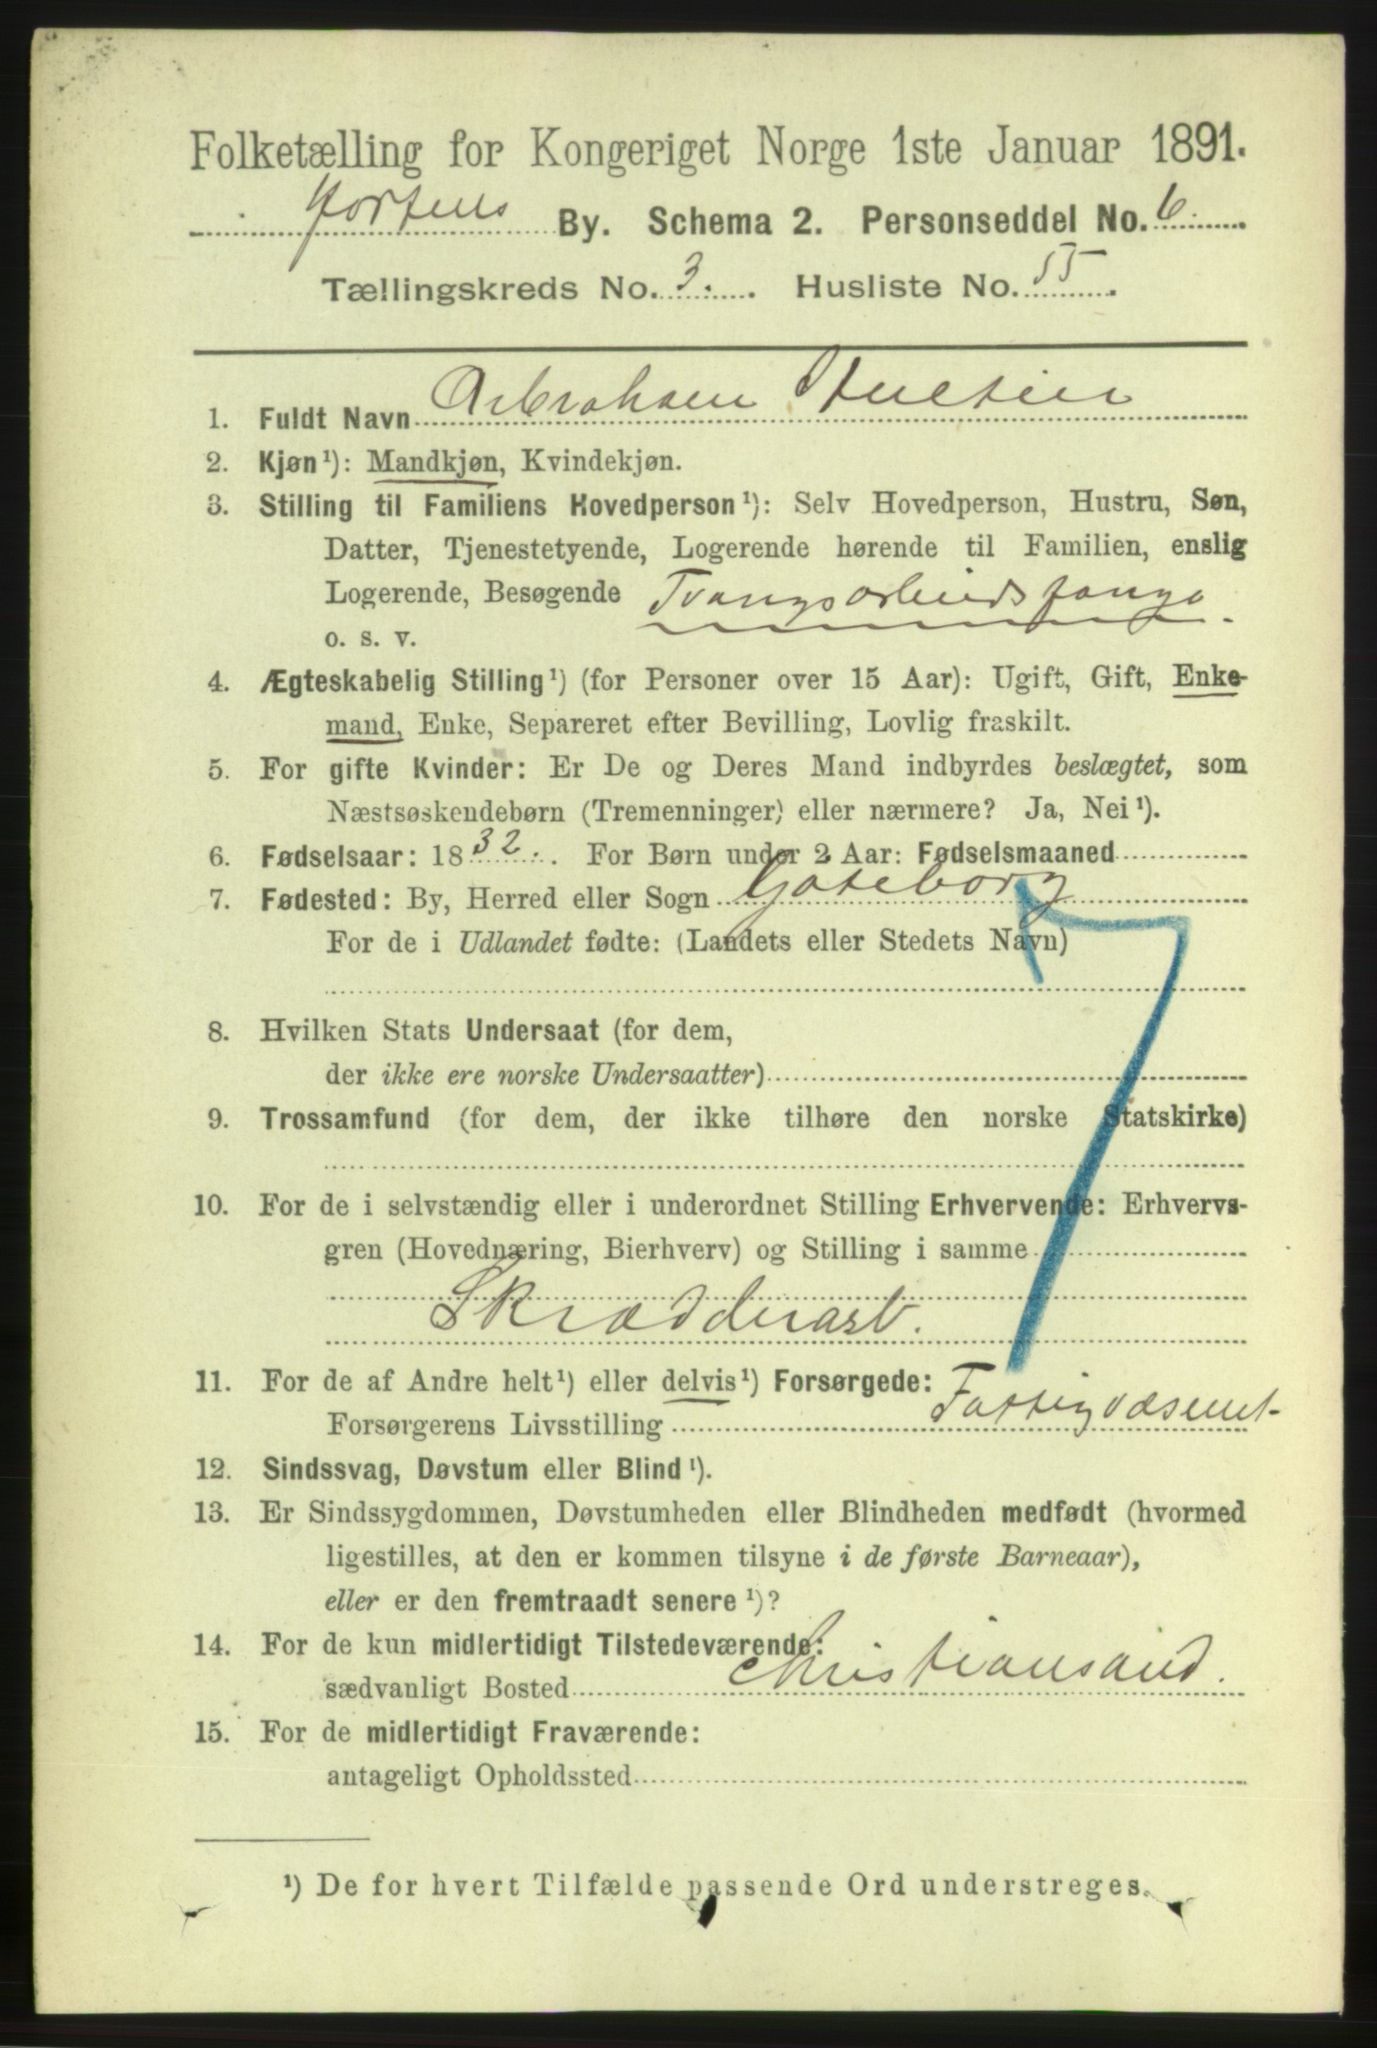 Folketælling for Kongeriget Norge 1ste Januar 1891.
Hortens By. Schema 2. Personseddel No. 6
Tællingskreds No. 3. Husliste No. 55.
1. Fuldt Navn Abraham
2. Kjøn¹): Mandkjøn, Kvindekjøn.
3. Stilling til Familiens Hovedperson¹): Selv Hovedperson, Hustru, Søn,
Datter, Tjenestetyende, Logerende hørende til Familien, enslig
Logerende, Besøgende Tvangsarbeidsfange
o. s. v.
4. Ægteskabelig Stilling¹) (for Personer over 15 Aar): Ugift, Gift, Enke-
mand, Enke, Separeret efter Bevilling, Lovlig fraskilt.
5. For gifte Kvinder: Er De og Deres Mand indbyrdes beslægtet, som
Næstsøskendebørn (Tremenninger) eller nærmere? Ja, Nei¹).
6. Fødselsaar: 1832. For Børn under 2 Aar: Fødselsmaaned
7. Fødested: By, Herred eller Sogn Gøteborg
For de i Udlandet fødte: (Landets eller Stedets Navn)
7
8. Hvilken Stats Undersaat (for dem,
der ikke ere norske Undersaatter)
9. Trossamfund (for dem, der ikke tilhøre den norske Statskirke)
10. For de i selvstændig eller i underordnet Stilling Erhvervende: Erhvervs-
gren (Hovednæring, Bierhverv) og Stilling i samme
Skrædderarb.
11. For de af Andre helt¹) eller delvis¹) Forsørgede:
Forsørgerens Livsstilling Fattigvæsenet
12. Sindssvag, Døvstum eller Blind¹).
13. Er Sindssygdommen, Døvstumheden eller Blindheden medfødt (hvormed
ligestilles, at den er kommen tilsyne i de første Barneaar),
eller er den fremtraadt senere¹)?
14. For de kun midlertidigt Tilstedeværende:
sædvanligt Bosted Christiansand.
15. For de midlertidigt Fraværende:
antageligt Opholdssted
¹) De for hvert Tilfælde passende Ord understreges.